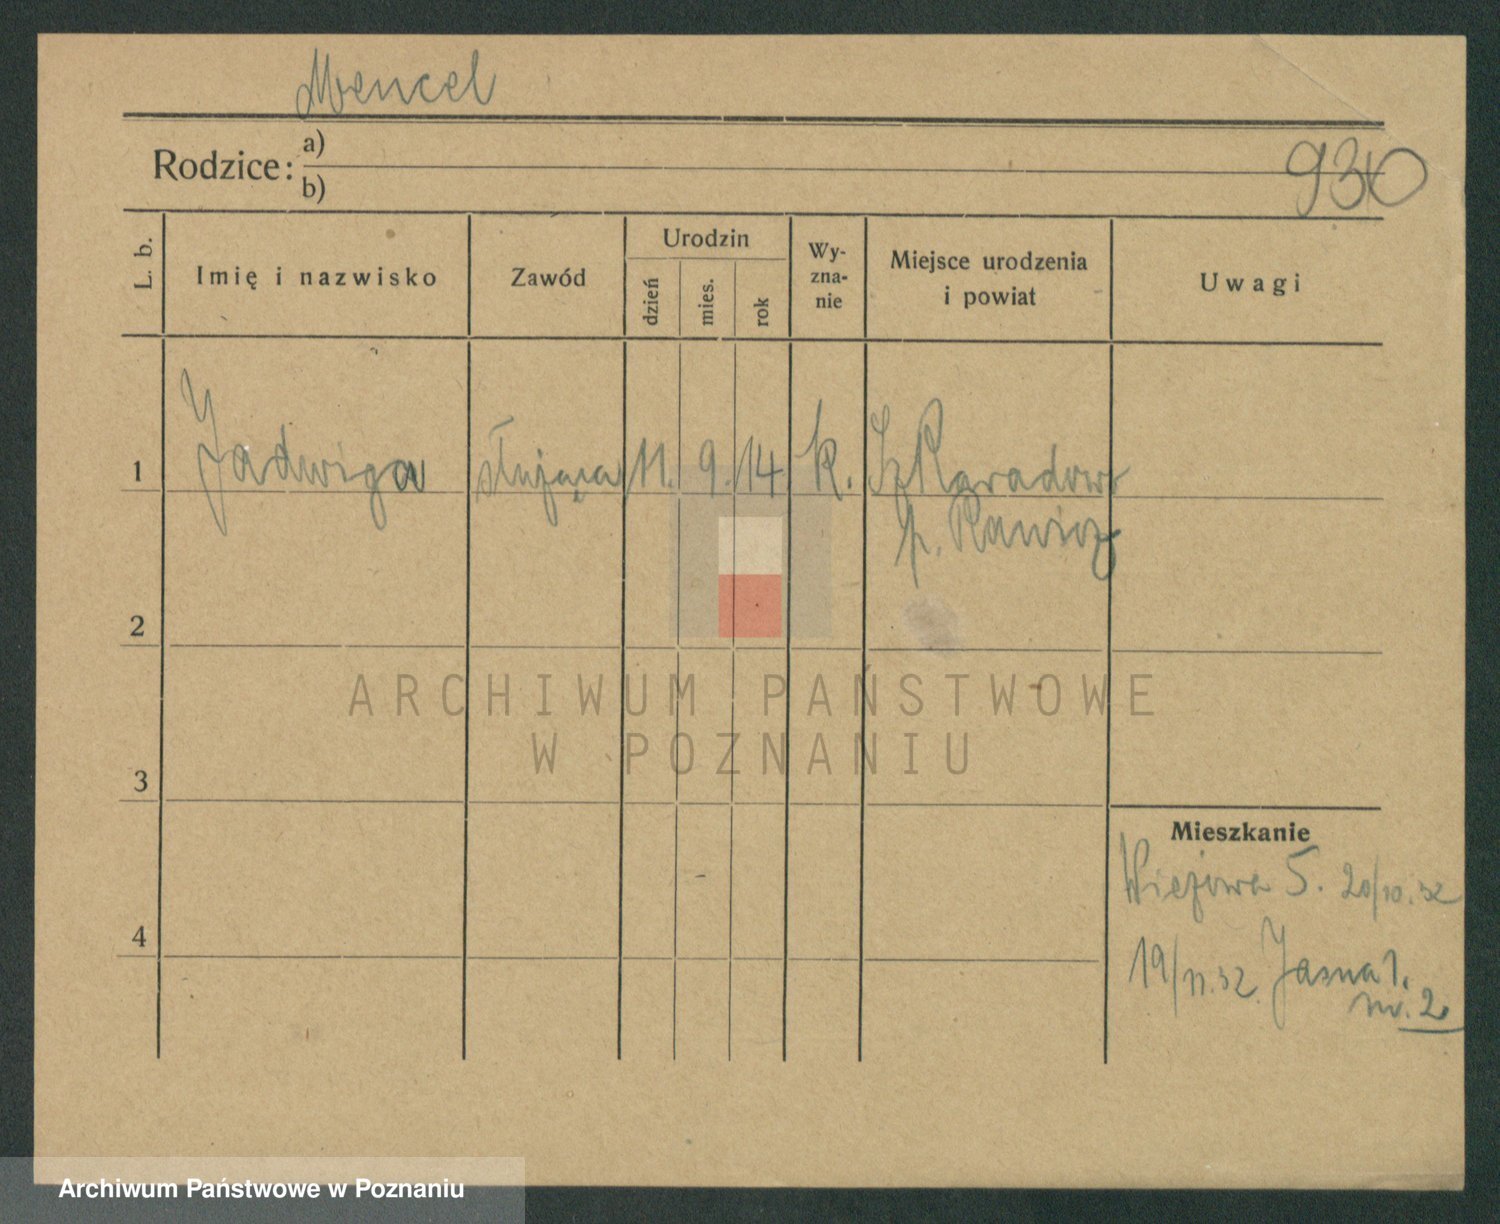 Mencel
Rodzice:
a)
b)
930
L. b.
Imię i nazwisko
Zawód
Urodzin
dzień
mies.
rok
Wy-
zna-
nie
Miejsce urodzenia
i powiat
Uwagi
1
Jadwiga
służąca
11.
9.
14
k.
Szkaradowo
p. Rawicz
2
3
4
Mieszkanie
Wieżowa 5. 20/10.32
19/11.32 Jasna 1.
m. 2.
ARCHIWUM PAŃSTWOWE
W POZNANIU
Archiwum Państwowe w Poznaniu